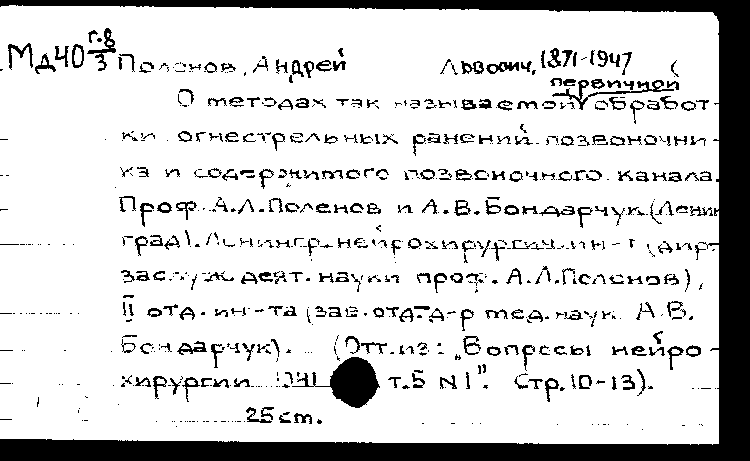 Мд40 г.8/3 Поленов, Андрей Львович, 1871-1947 (
первичной
О методах так называемой обработ-
ки огнестрельных ранений позвоночни-
ка и содержимого позвоночного канала.
Проф. А.Л.Поленов и А.В.Бондарчук (Ленин
град). Ленингр. нейрохирургич. ин-т (дирт
заслуж. деят. науки проф. А.Л.Поленов),
II отд. ин-та (зав. отд. д-р мед. наук А.В.
Бондарчук). (Отт. из: „Вопросы нейро-
хирургии 1941 т.5 N1". Стр. 10-13).
25 cm.